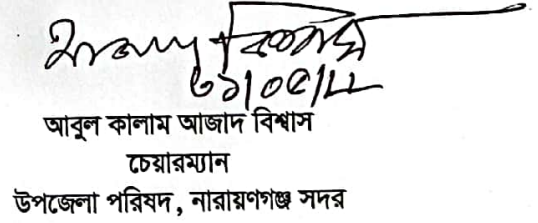 ৩১/০৫/২২
আবুল কালাম আজাদ বিশ্বাস
চেয়ারম্যান
উপজেলা পরিষদ, নারায়ণগঞ্জ সদর